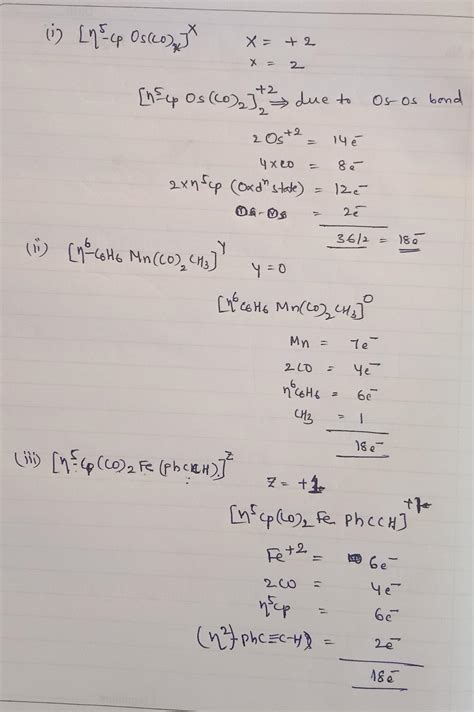 (i) [η⁵-Cp Os(CO)ₓ]ˣ x = +2
x = 2
[η⁵-Cp Os(CO)₂]₂⁺² ⇒ due to Os-Os bond
2 Os⁺² = 14e⁻
4xCO = 8e⁻
2xη⁵Cp (Oxdⁿ state) = 12e⁻
Os-Os = 2e⁻
36/2 = 18e⁻
(ii) [η⁶-C6H6 Mn(CO)₂CH₃]ʸ
y = 0
[η⁶C6H6 Mn(CO)₂CH₃]⁰
Mn = 7e⁻
2CO = 4e⁻
η⁶C6H6 = 6e⁻
CH₃ = 1
18e⁻
(iii) [η⁵-Cp(CO)₂Fe(PhCCH)]ᶻ
z = +1
[η⁵Cp(CO)₂Fe PhCCH]⁺¹
Fe⁺² = 6e⁻
2CO = 4e⁻
η⁵Cp = 6e⁻
(η²)-PhC≡C-H) = 2e⁻
18e⁻